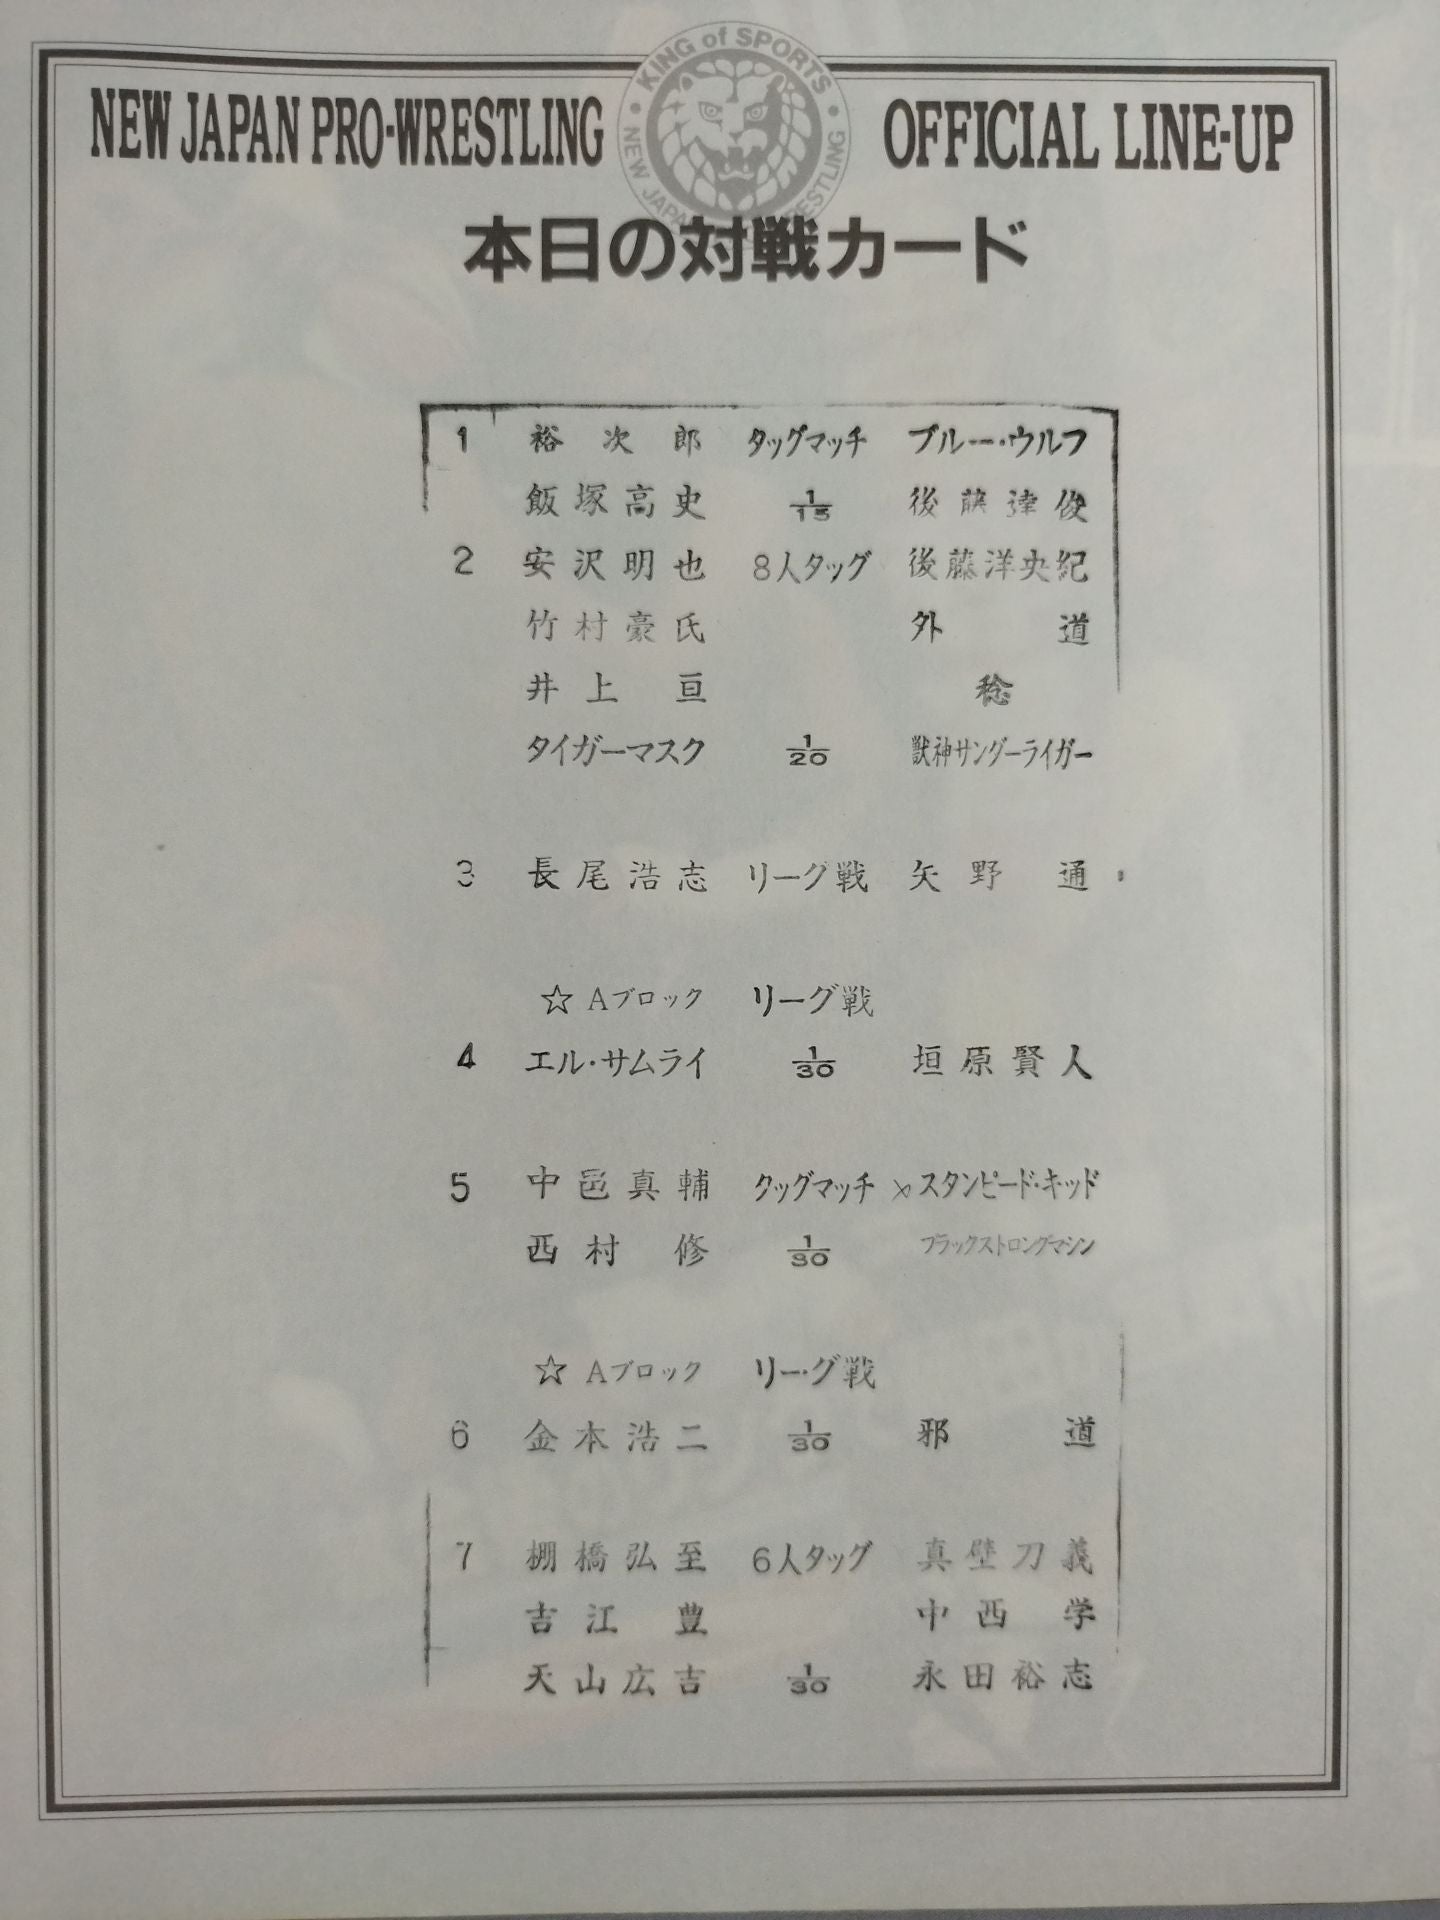 KING of SPORTS
NEW JAPAN PRO-WRESTLING
NEW JAPAN PRO-WRESTLING OFFICIAL LINE-UP
本日の対戦カード
1 裕次郎 タッグマッチ ブルー・ウルフ
飯塚高史 1/15 後藤達俊
2 安沢明也 8人タッグ 後藤洋央紀
竹村豪氏 外道
井上亘 稔
タイガーマスク 1/20 獣神サンダーライガー
3 長尾浩志 リーグ戦 矢野通
☆ Aブロック リーグ戦
4 エル・サムライ 1/30 垣原賢人
5 中邑真輔 タッグマッチ ×スタンピード・キッド
西村修 1/30 ブラックストロングマシン
☆ Aブロック リーグ戦
6 金本浩二 1/30 邪道
7 棚橋弘至 6人タッグ 真壁刀義
吉江豊 中西学
天山広吉 1/30 永田裕志